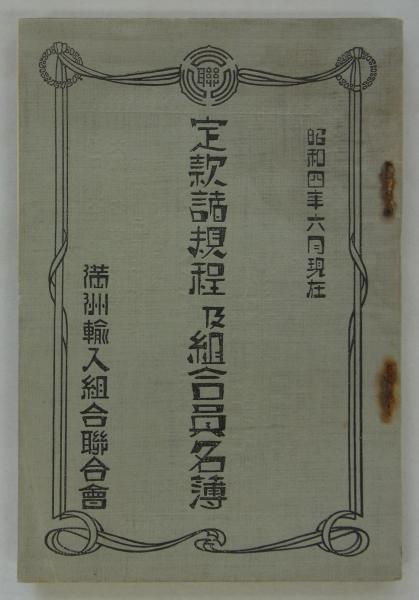 聯
昭和四年六月現在
定款諸規程及組合員名簿
満洲輸入組合聯合會